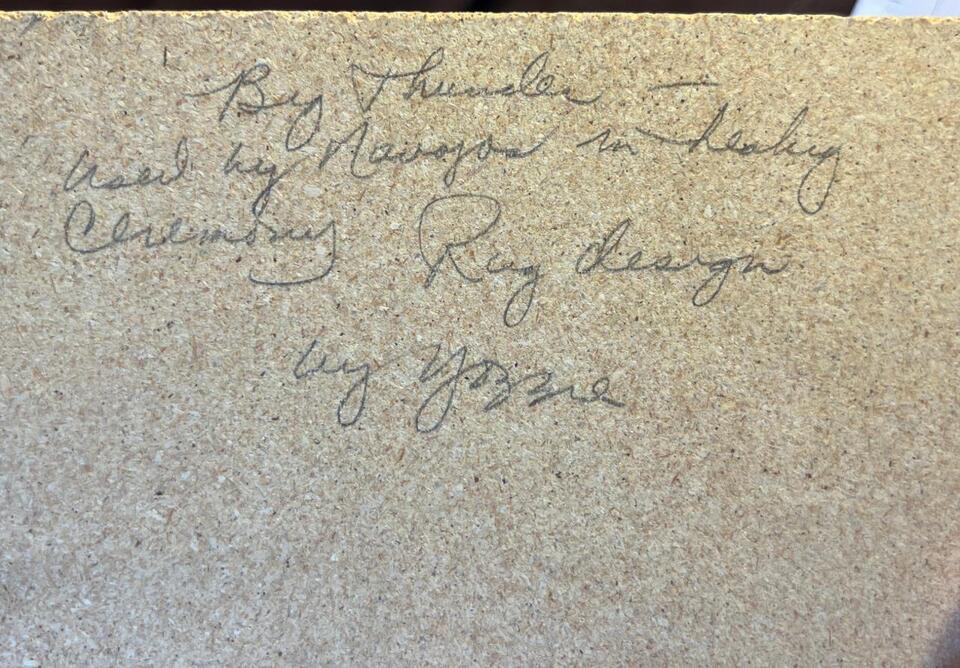 Big Thunder —
used by Navajos in
Ceremony Rug design
by Yozzie